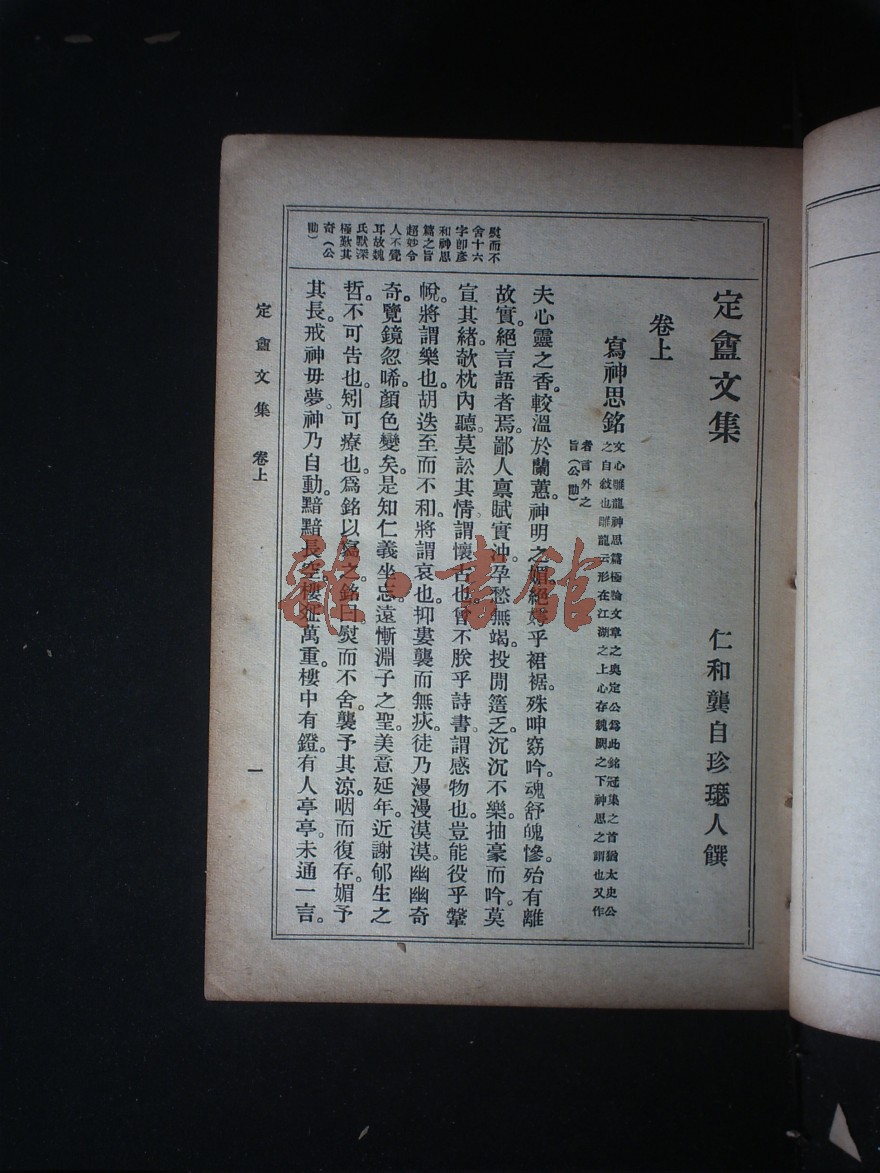 定盦文集
仁和龔自珍瑟人譔
卷上
寫神思銘
文心雕龍神思篇極論文章之奧定公爲此銘冠集之首猶太史公
之自敘也雕龍云形在江湖之上心存魏闕之下神思之謂也又作
者言外之
旨(公勖)
夫心靈之香。較溫於蘭蕙。神明之媚。絕嫮乎裙裾。殊呻窈吟。魂舒魄慘。殆有離
故實。絕言語者焉。鄙人禀賦實沖。孕愁無竭。投閒簉乏。沉沉不樂。抽豪而吟。莫
宣其緒。欹枕內聽。莫訟其情。謂懷古也。曾不朕乎詩書。謂感物也。豈能役乎鞶
帨。將謂樂也。胡迭至而不和。將謂哀也。抑屢襲而無疢。徒乃漫漫漠漠。幽幽奇
奇。覽鏡忽唏。顏色變矣。是知仁義坐忘。遠慚淵子之聖。美意延年。近謝郇生之
哲。不可告也。矧可療也。爲銘以寫之。銘曰熨而不舍。襲予其涼。咽而復存。媚予
其長。戒神毋夢。神乃自動。黯黯長空。樓疏萬重。樓中有鐙。有人亭亭。未通一言。
熨而不
舍十六
字卽彥
和神思
篇之旨
超妙令
人不覺
耳故魏
氏默深
極歎其
奇(公
勖)
定盦文集 卷上
一
雜·書館